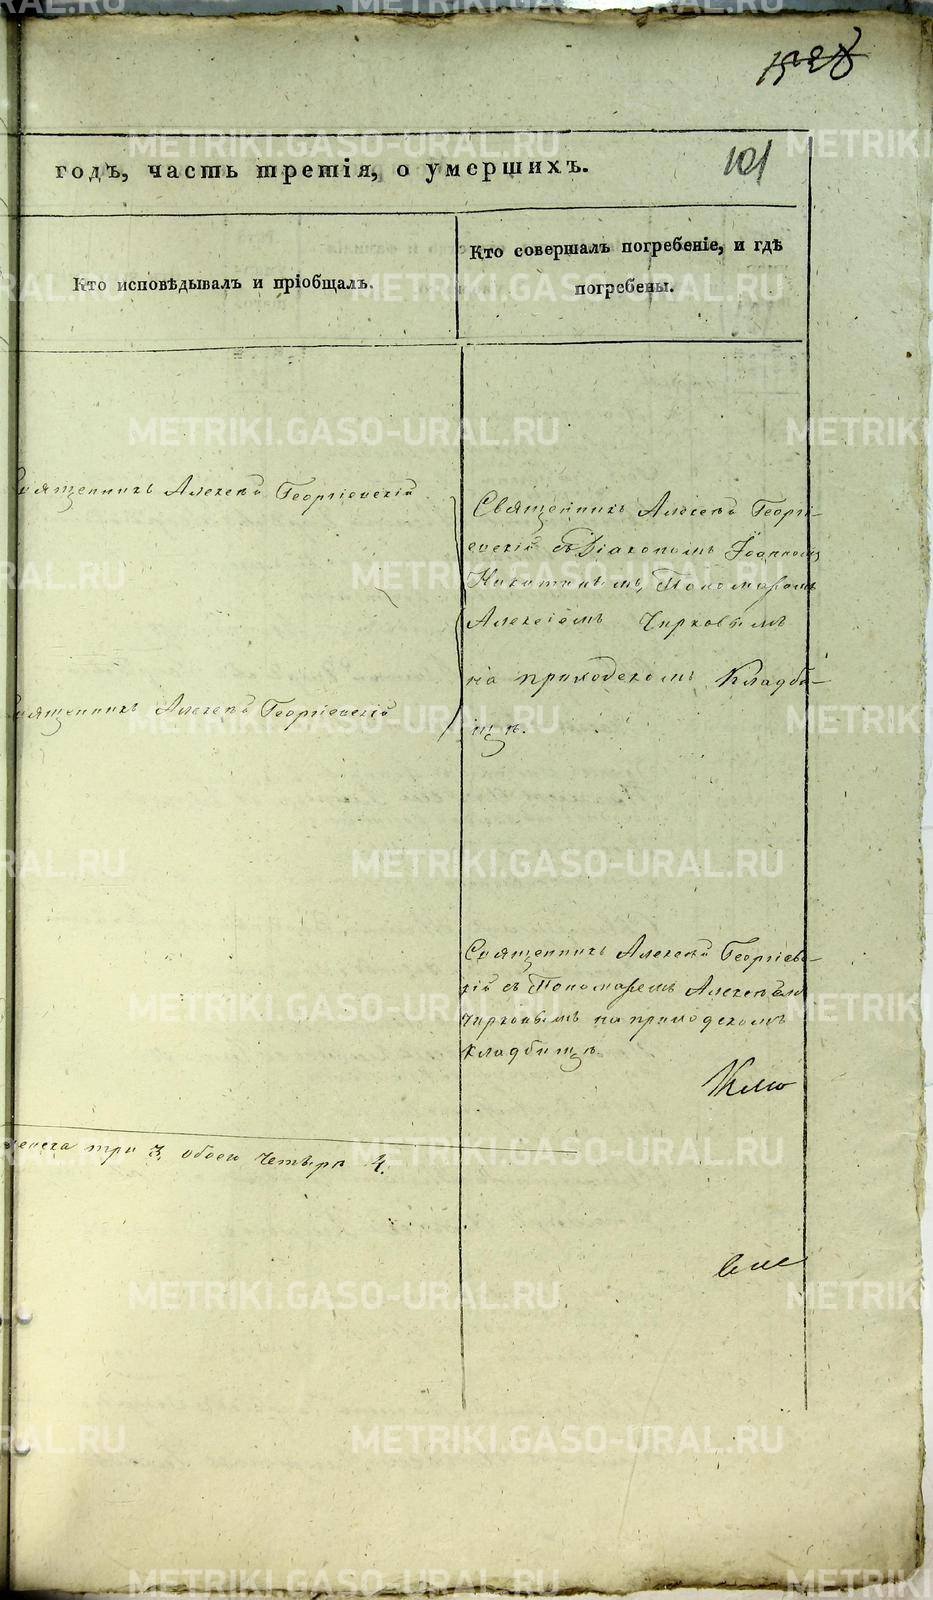 101
годъ, часть третія, о умершихъ.
Кто исповѣдывалъ и пріобщалъ.
Кто совершалъ погребеніе, и гдѣ
погребены.
Священникъ Алексѣй Георгіевскій
Священникъ Алексѣй Георгі-
евскій съ Діакономъ Іоанномъ
Никитинымъ, Пономаремъ
Алексіемъ Чирковымъ
на приходскомъ Кладби-
щѣ.
Священникъ Алексѣй Георгіевскій
Священникъ Алексѣй Георгіевс-
кій съ Пономаремъ Алексѣемъ
Чирковымъ на приходскомъ
кладбищѣ.
женска три 3, обоего четыре 4.
METRIKI.GASO-URAL.RU